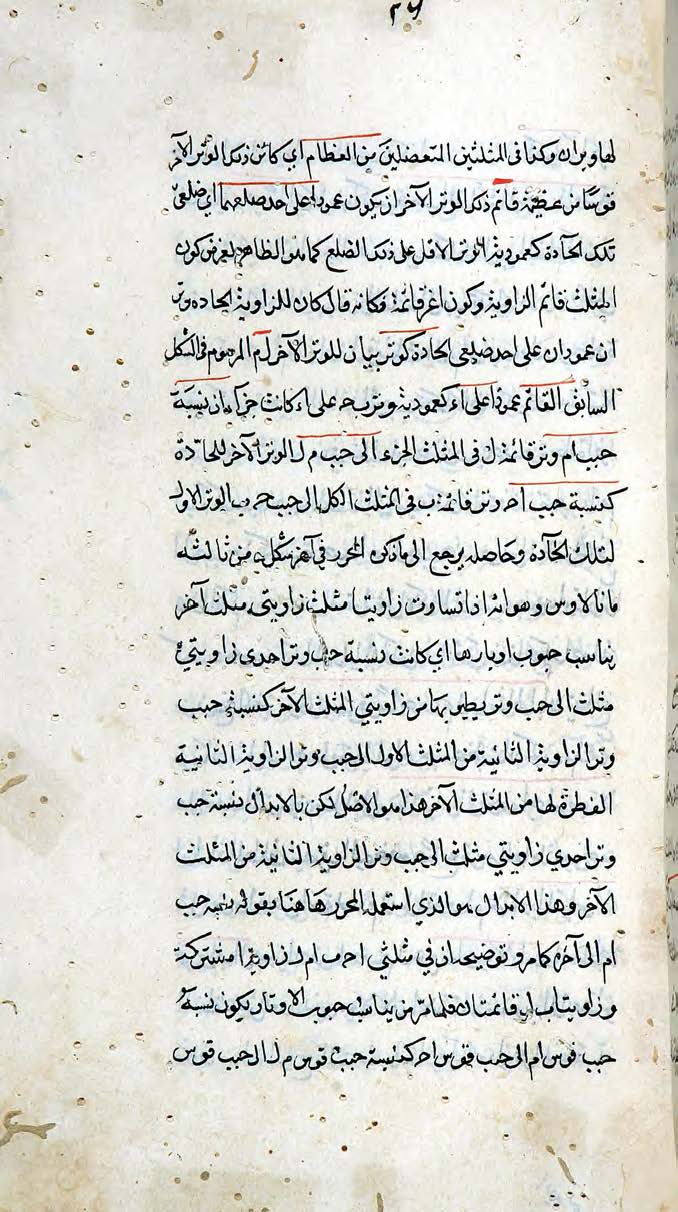 ٢٦
لها وتران وكذا فى المثلثين من العظام اى كائن ذلك الوتر الآخر
قوسا من عظيمة قائم ذلك الوتر الآخر ان يكون عمودا على احد ضلعيها اى ضلعى
تلك الحادة كعمودية الوتر الاول على ذلك الضلع كما هو الظاهر لغرض كون
المثلث قائم الزاوية وكون قائمة فكانه قال كان للزاوية الحادة وتر
ان عمودان على احد ضلعى الحادة كوتر بيان للوتر الآخر ل م المرسوم فى الشكل
السابق القائم عمودا على ا ء كعمودية وتر ب ح على ا ء كانت نسبة
جيب ا م وتر قائمة ل فى المثلث الجزء الى جيب م ل الوتر الآخر للحادة
كنسبة جيب ا ح وتر قائمة ب فى المثلث الكل الى جيب ح ب الوتر الاول
لتلك الحادة وحاصله يرجع الى ما ذكره المحرر فى آخر شكل من ثالثه
مانالاوس وهو انه اذا تساوت زاويتا مثلث زاويتى مثلث آخر
يناسب جيوب اوتارها اى كانت نسبة جيب وتر احدى زاويتى
مثلث الى جيب وتر من زاويتى المثلث الآخر كنسبة جيب
وتر الزاوية الثانية من المثلث الاول الى جيب وتر الزاوية الثانية
لها من المثلث الآخر هذا هو الاصل لكن بالابدال نسبة جيب
وتر احدى زاويتى مثلث الى جيب وتر الزاوية الثانية من المثلث
الآخر وهذا الابدال هو الذى استعمله المحرر هاهنا بقوله نسبة جيب
ا م الى آخره كما مر وتوضيحه ان فى مثلثى ا ح ب ا م ل زاوية ا مشتركة
وزاويتا ب ل قائمتان فلما مر من تناسب جيوب الاوتار يكون نسبة
جيب قوس ا م الى جيب قوس ا ح كنسبة جيب قوس م ل الى جيب قوس